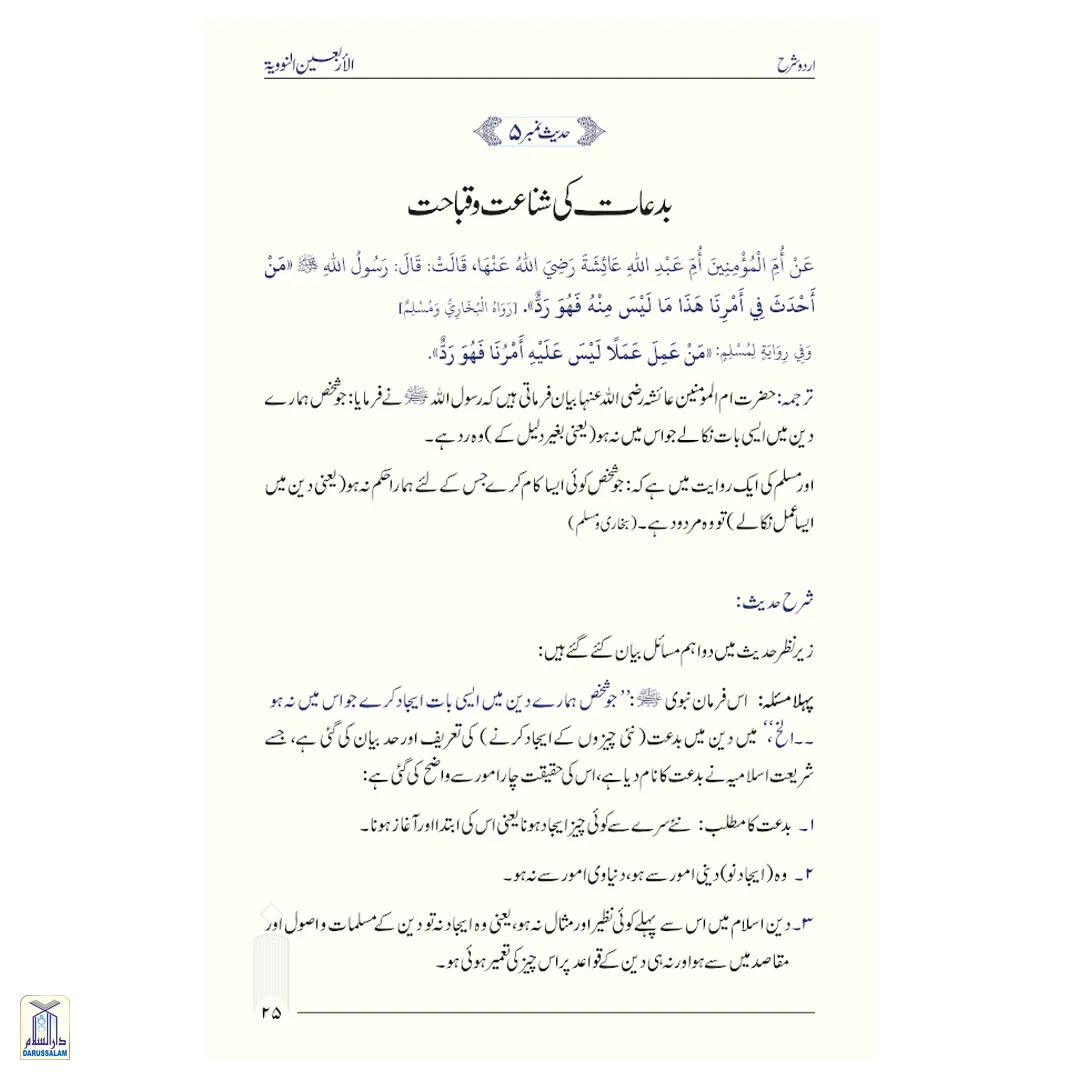 اردو شرح
الأربعين النووية
حدیث نمبر ۵
بدعات کی شناعت و قباحت
عَنْ أُمِّ الْمُؤْمِنِينَ أُمِّ عَبْدِ اللهِ عَائِشَةَ رَضِيَ اللهُ عَنْهَا، قَالَتْ: قَالَ: رَسُولُ اللهِ ﷺ «مَنْ
أَحْدَثَ فِي أَمْرِنَا هَذَا مَا لَيْسَ مِنْهُ فَهُوَ رَدٌّ». [رَوَاهُ الْبُخَارِيُّ وَمُسْلِمٌ]
وَفِي رِوَايَةٍ لِمُسْلِمٍ: «مَنْ عَمِلَ عَمَلًا لَيْسَ عَلَيْهِ أَمْرُنَا فَهُوَ رَدٌّ».
ترجمہ: حضرت ام المومنین عائشہ رضی اللہ عنہا بیان فرماتی ہیں کہ رسول اللہ ﷺ نے فرمایا: جو شخص ہمارے
دین میں ایسی بات نکالے جو اس میں نہ ہو (یعنی بغیر دلیل کے) وہ رد ہے۔
اور مسلم کی ایک روایت میں ہے کہ: جو شخص کوئی ایسا کام کرے جس کے لئے ہمارا حکم نہ ہو (یعنی دین میں
ایسا عمل نکالے) تو وہ مردود ہے۔ (بخاری و مسلم)
شرح حدیث:
زیر نظر حدیث میں دو اہم مسائل بیان کئے گئے ہیں:
پہلا مسئلہ: اس فرمان نبوی ﷺ: ’’جو شخص ہمارے دین میں ایسی بات ایجاد کرے جو اس میں نہ ہو
۔۔الخ،‘‘ میں دین میں بدعت (نئی چیزوں کے ایجاد کرنے) کی تعریف اور حد بیان کی گئی ہے، جسے
شریعت اسلامیہ نے بدعت کا نام دیا ہے، اس کی حقیقت چار امور سے واضح کی گئی ہے:
۱۔ بدعت کا مطلب: نئے سرے سے کوئی چیز ایجاد ہونا یعنی اس کی ابتدا اور آغاز ہونا۔
۲۔ وہ (ایجاد نو) دینی امور سے ہو، دنیاوی امور سے نہ ہو۔
۳۔ دین اسلام میں اس سے پہلے کوئی نظیر اور مثال نہ ہو، یعنی وہ ایجاد نہ تو دین کے مسلمات و اصول اور
مقاصد میں سے ہو اور نہ ہی دین کے قواعد پر اس چیز کی تعمیر ہوئی ہو۔
۲۵
دارالسلام
DARUSSALAM